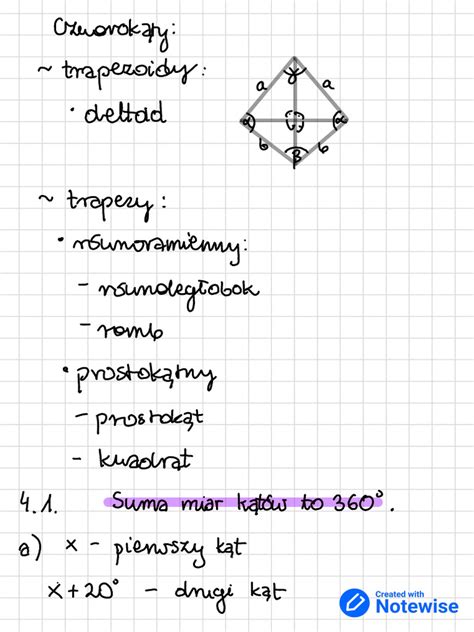 Czworokąty:
~ trapezoidy:
• deltoid
γ
a a
α α
b β b
~ trapezy:
• równoramienny:
- równoległobok
- romb
• prostokątny
- prostokąt
- kwadrat
4.1. Suma miar kątów to 360°.
a) x - pierwszy kąt
x + 20° - drugi kąt
Created with
Notewise